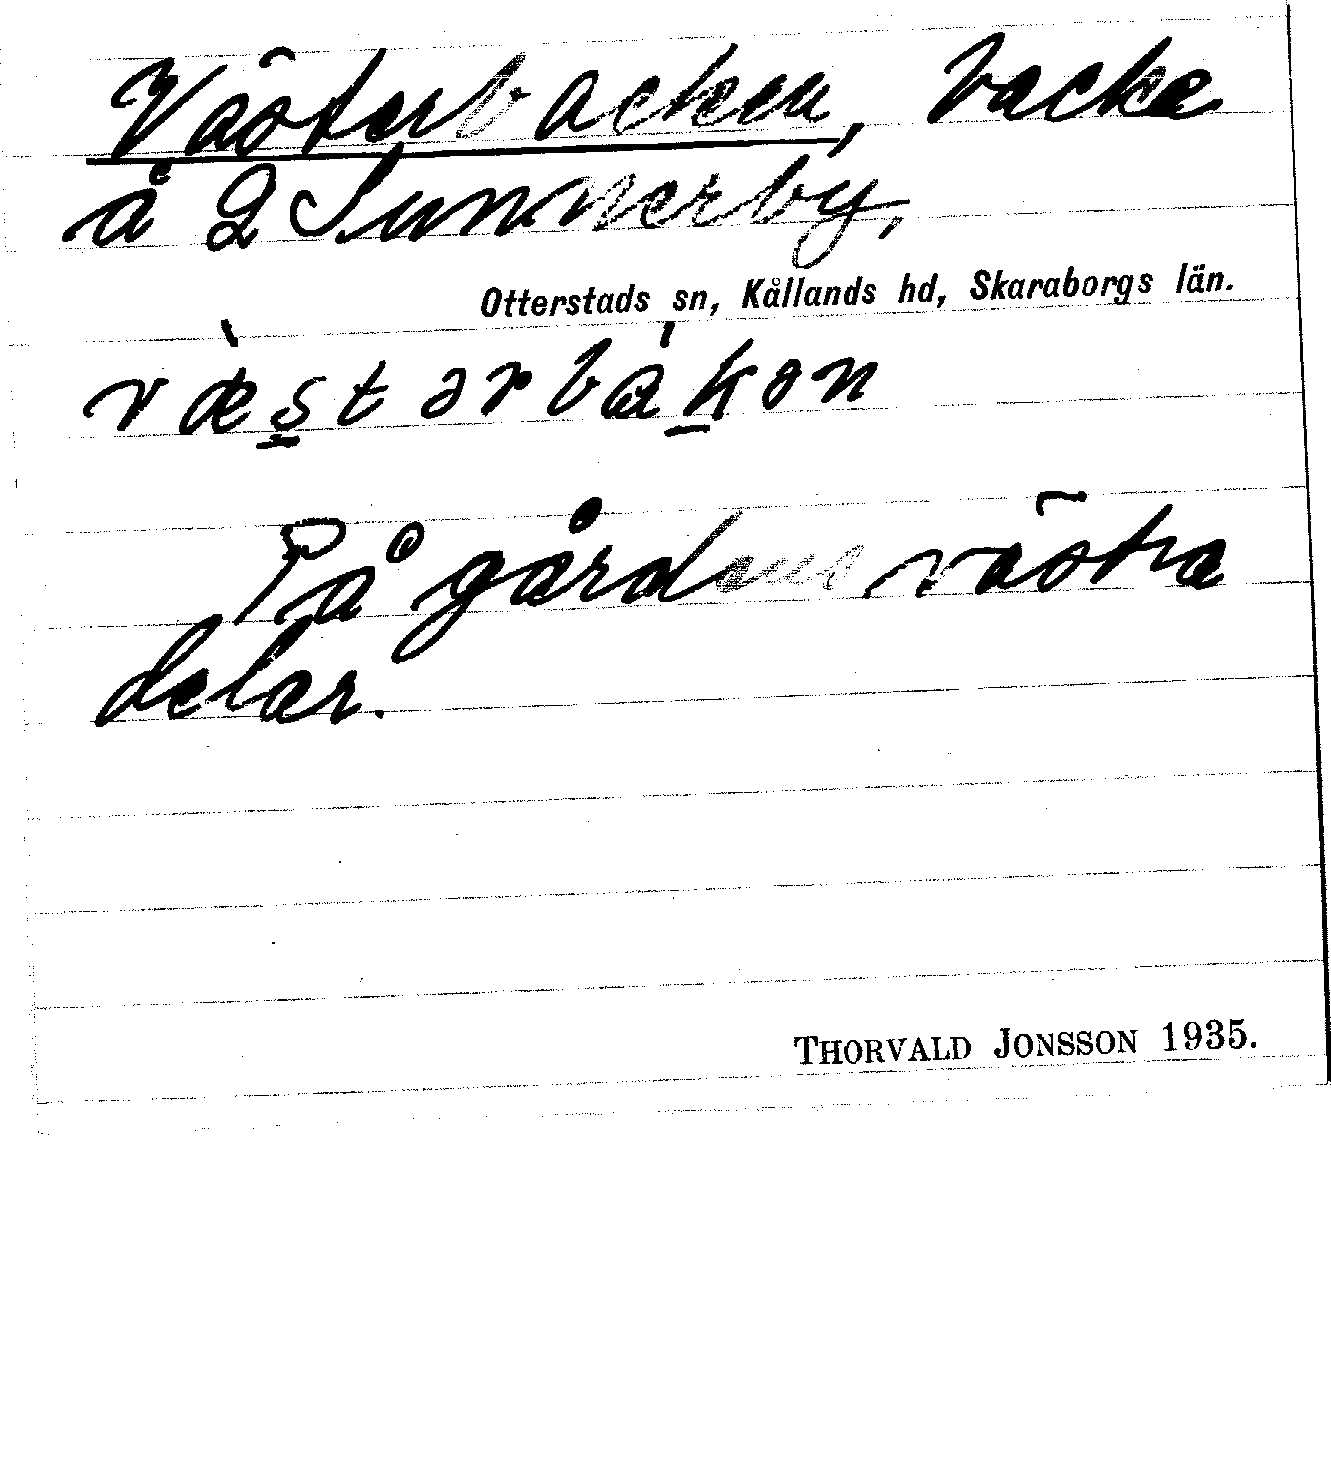 Västerbacken, backe
å 2 Sunnerby,
Otterstads sn, Kållands hd, Skaraborgs län.
væ̀stərbákən
På gårdens västra
delar.
THORVALD JONSSON 1935.